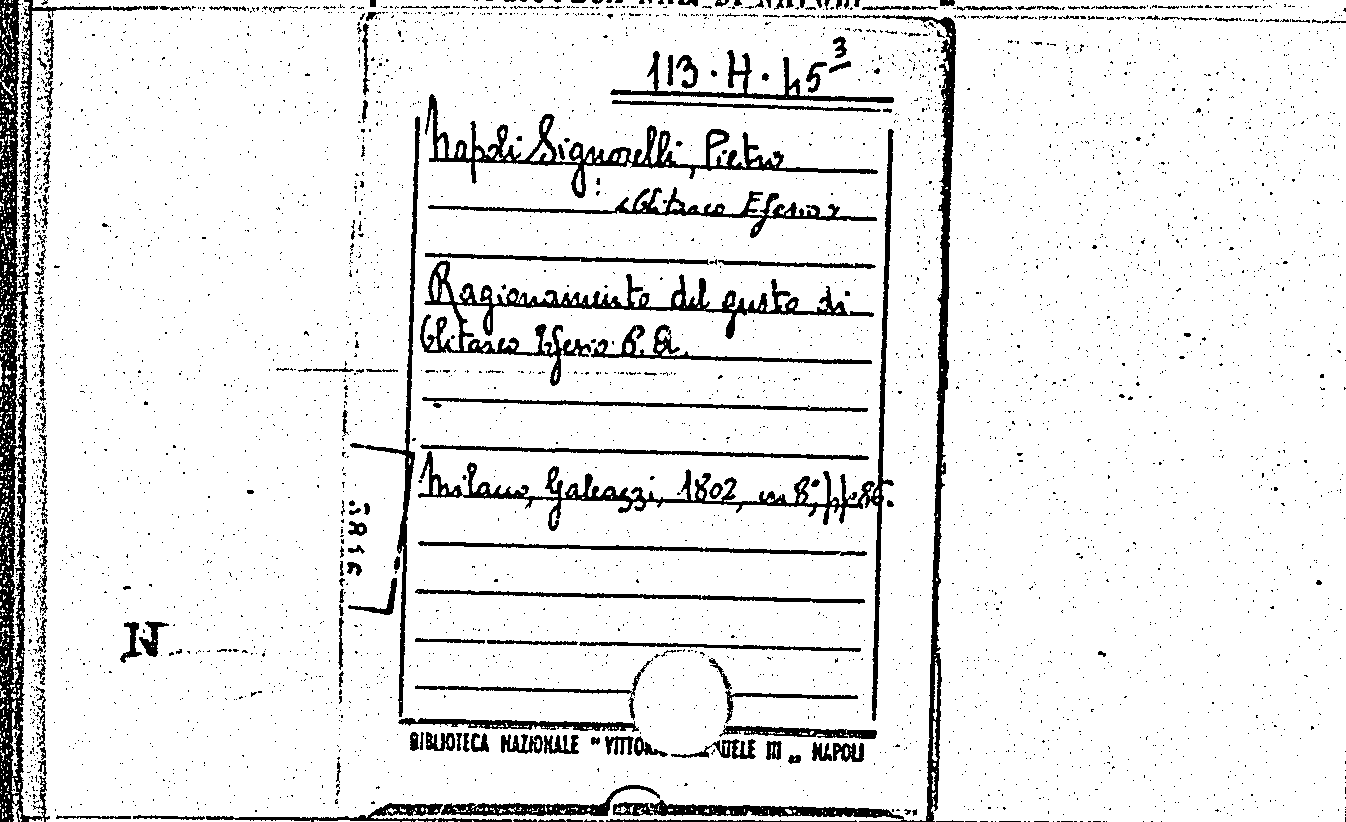 113 · H · 45³
Napoli Signorelli, Pietro
: <Clitarco Efesio>
Ragionamento del gusto di
Clitarco Efesio P. A.
Milano, Galeazzi, 1802, in 8°, pp. 86.
N
BIBLIOTECA NAZIONALE " VITTORIO III „ NAPOLI